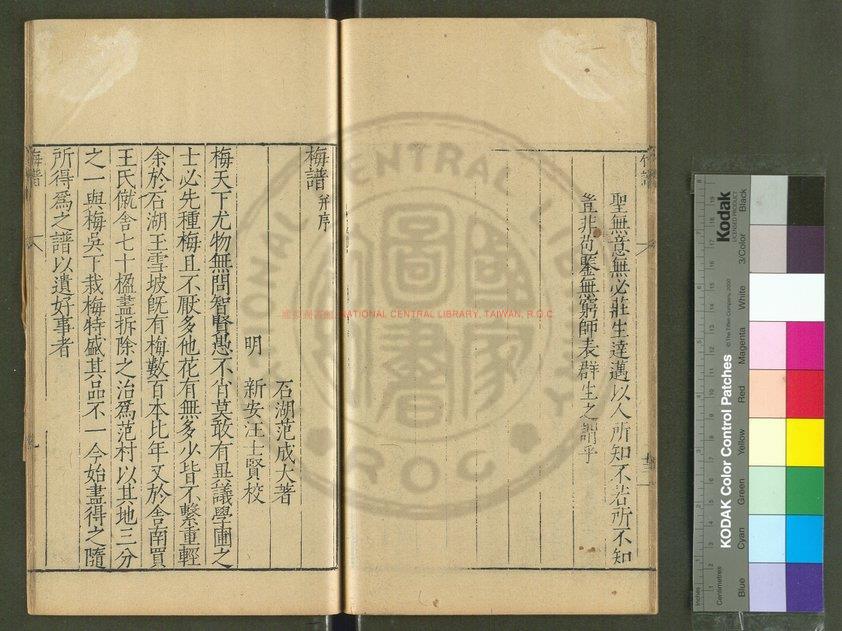 竹譜
聖無意無必莊生達邁以人所知不若所不知
豈非苞鑒無窮師表群生之謂乎
梅譜 并序
石湖范成大著
明 新安汪士賢校
梅天下尤物無問智賢愚不肖莫敢有異議學圃之
士必先種梅且不厭多他花有無多少皆不繫重輕
余於石湖玉雪坡旣有梅數百本比年又於舍南買
王氏僦舍七十楹盡拆除之治爲范村以其地三分
之一與梅吳下栽梅特盛其品不一今始盡得之隨
所得爲之譜以遺好事者
梅譜
國家圖書
NATIONAL CENTRAL LIBRARY, TAIWAN, R.O.C.
Kodak
LICENSED PRODUCT
KODAK Color Control Patches
© The Tiffen Company, 2000
Centimetres
Inches
Blue
Cyan
Green
Yellow
Red
Magenta
White
3/Color
Black